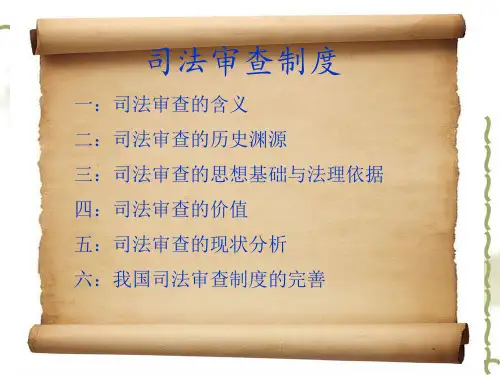 司法审查制度
一：司法审查的含义
二：司法审查的历史渊源
三：司法审查的思想基础与法理依据
四：司法审查的价值
五：司法审查的现状分析
六：我国司法审查制度的完善